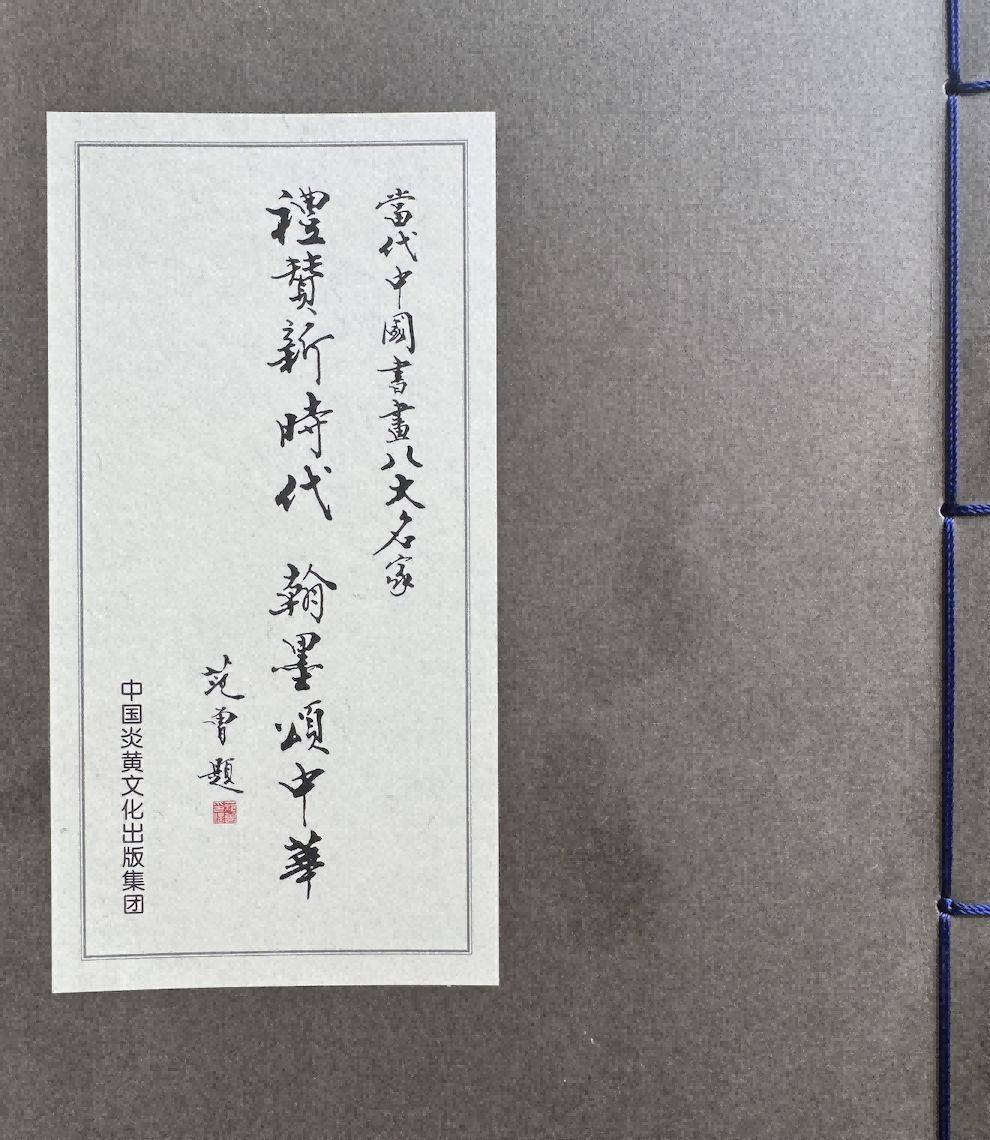 當代中國書畫八大名家
禮贊新時代 翰墨頌中華
范曾題
中国炎黄文化出版集团